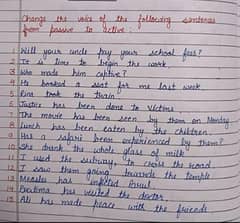 Change the voice of the following sentences
from passive to active :
1 Will your uncle pay your school fees?
2 It is time to begin the work.
3 Who made him captive?
4 He booked a seat for me last week
5 Rina took the train
6 Justice has been done to victims
7 The movie has been seen by them on Monday
8 Lunch has been eaten by the children.
9 Has a safari been experienced by them?
10 She drank the whole glass of milk
11 I used the subway to cross the road
12 I saw them going towards the temple
13 Measles has infected
14 Pratima has visited the doctor.
15 Ali has made peace with the friends